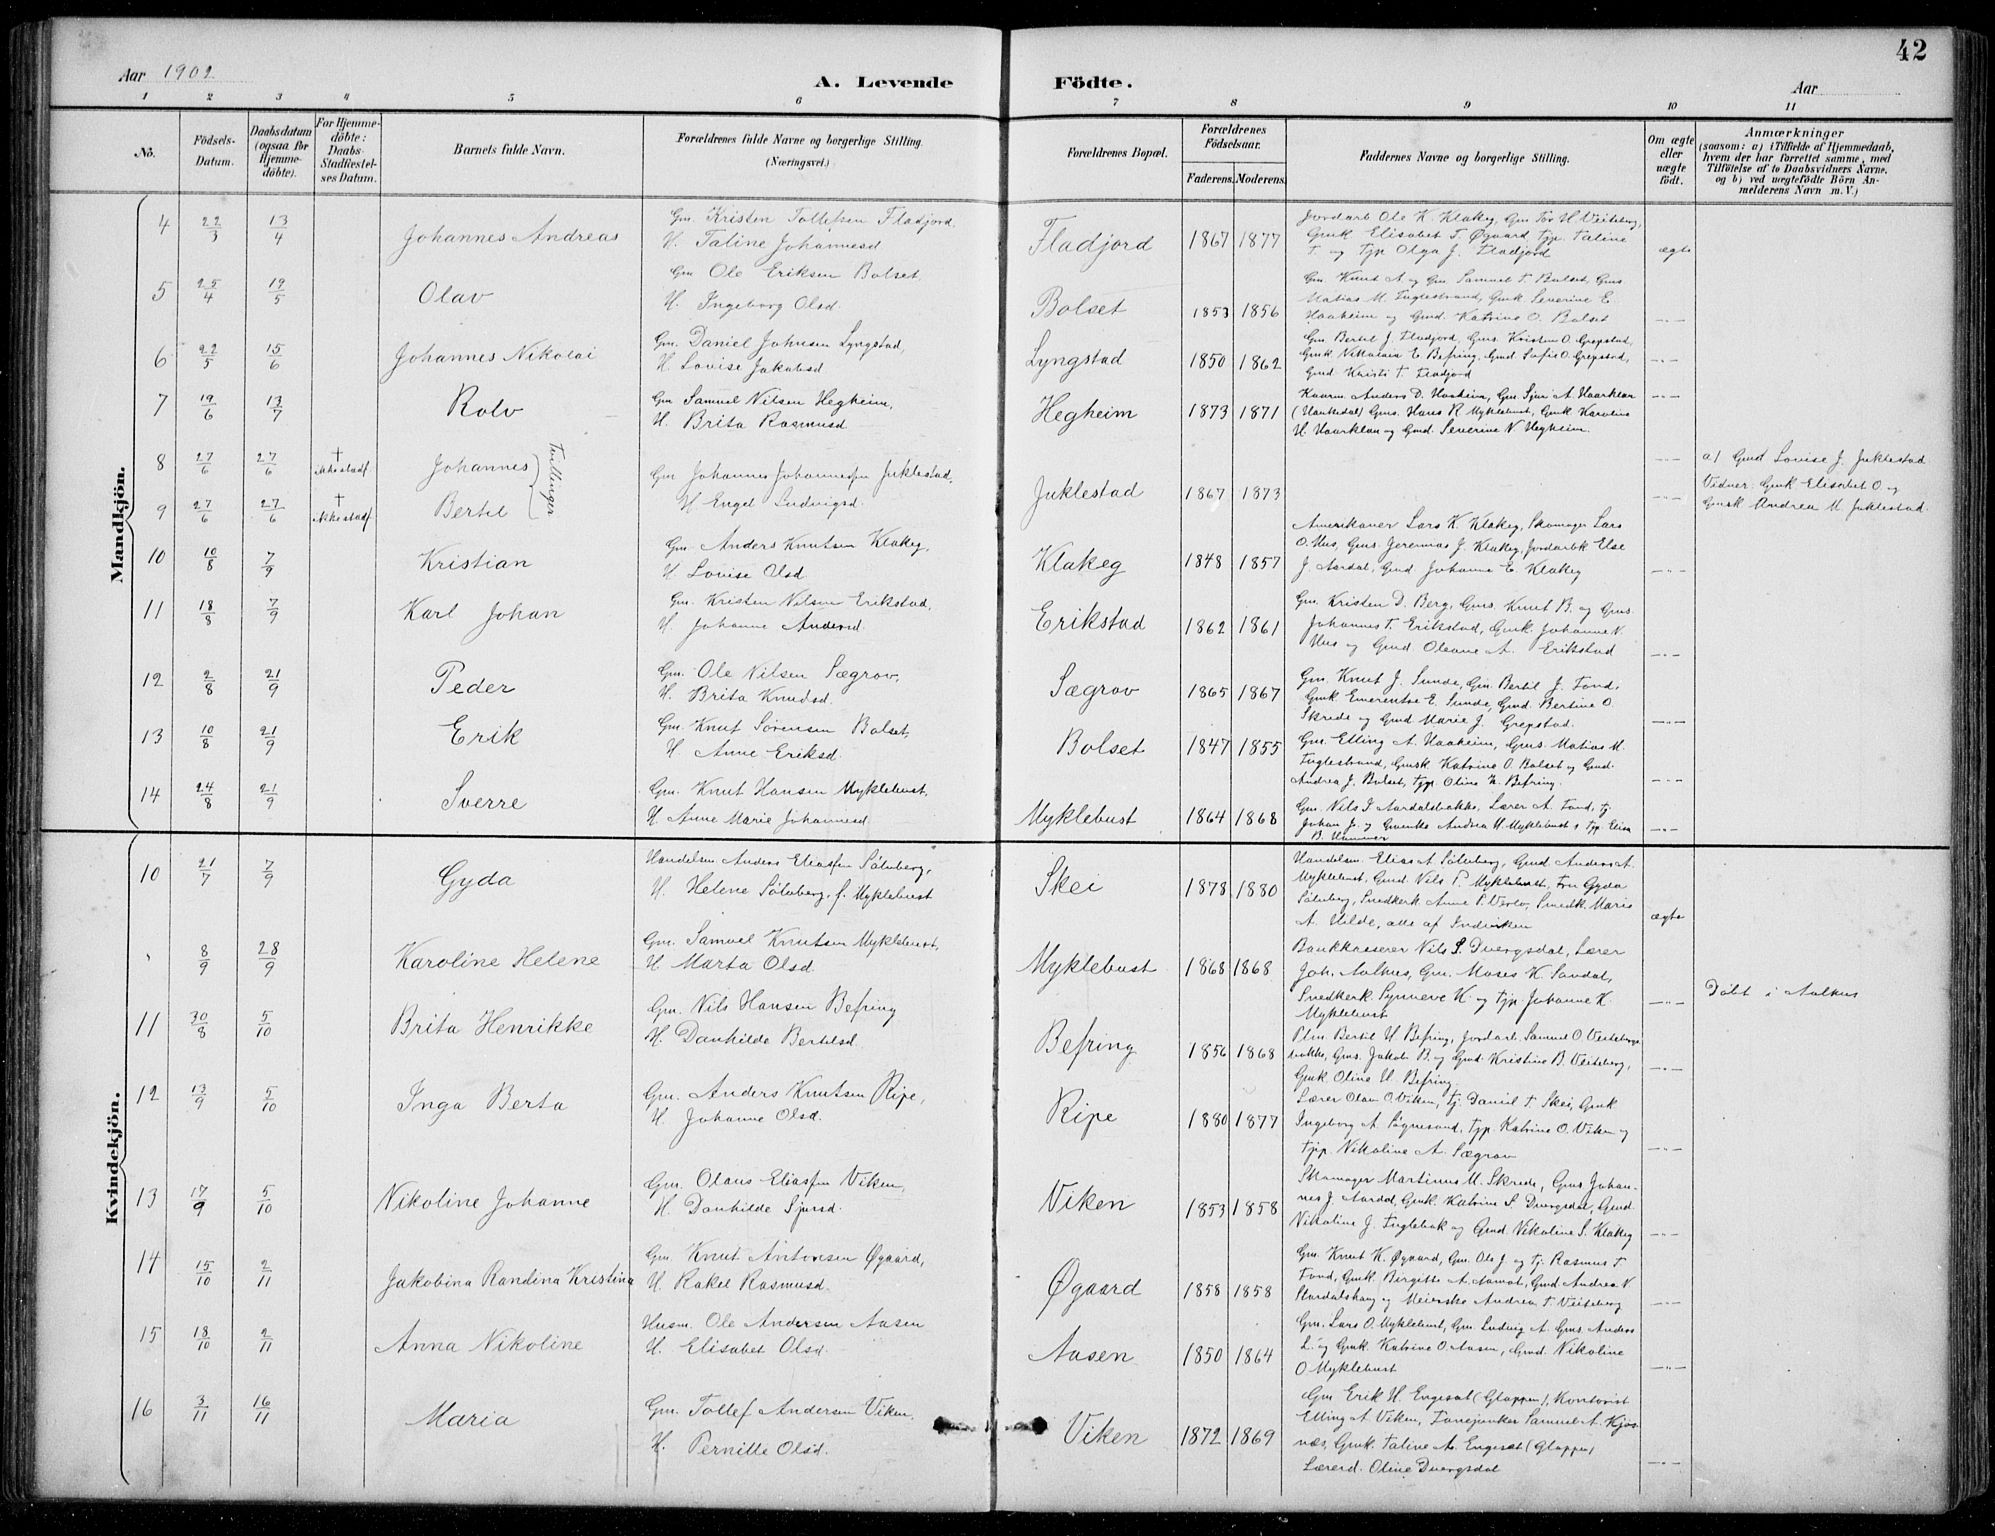 42
Aar 1902.
A. Levende Födte.
Aar
1 2 3 4 5 6 7 8 9 10 11
No.
Födsels-Datum.
Daabsdatum (ogsaa for Hjemme-döbte).
For Hjemme-döbte: Daabs-Stadfæstel-ses Datum.
Barnets fulde Navn.
Forældrenes fulde Navne og borgerlige Stilling.
(Næringsvei.)
Forældrenes Bopæl.
Forældrenes Födselsaar.
Faderens. Moderens.
Faddernes Navne og borgerlige Stilling.
Om ægte eller uægte födt.
Anmærkninger
(saasom: a) i Tilfælde af Hjemmedaab, hvem der har forrettet samme, med Tilföielse af to Daabsvidners Navne, og b) ved uægtefödte Börn An-melderens Navn m. V.)
Mandkjön.
4 22/3 13/4 Johannes Andreas
Gm. Kristen Tollefsen Fladjord,
H. Taline Johannesd.
Fladjord 1867 1877
Jordarb Ole K. Klakeg, Gm Tor H Veiteberg,
Gmk Elisabet T. Øgaard, tjp. Taline
T. og tjp Olga J. Fladjord
ægte
5 25/4 19/5 Olav
Gm Ole Eriksen Bolset,
H. Ingeborg Olsd.
Bolset 1853 1856
Gm Knut A og Gm Samuel T. Bolset, Gms
Matias M. Fuglestrand, Gmk Severine E.
Haaheim og Gmd Katrine O. Bolset
—„—
6 22/5 15/6 Johannes Nikolai
Gm. Daniel Johnsen Lyngstad,
H. Lovise Jakobsd
Lyngstad 1850 1862
Gm Bertel J. Fladjord, Gms. Kristen O. Grepstad,
Gmk Nikolaia E Befring, Gmd Sofie O. Grepstad,
Gmd Kristi T. Fladjord
—„—
7 19/6 13/7 Rolv
Gm Samuel Nilsen Hegheim,
H. Brita Rasmusd
Hegheim 1873 1871
Kaarm Anders D. Haaheim, Gm Sjur A Haarklau
(Haukedal) Gms. Hans R Myklebust, Gmk Karoline
H. Haarklau og Gmd. Severine N Hegheim.
—„—
8 27/6 27/6 † ikke stadf. Johannes
9 27/6 27/6 † ikke stadf. Bertel
Tvillinger
Gm Johannes Johannessen Juklestad,
H Engel Ludvigsd.
Juklestad 1867 1873
—„—
—„—
a) Gmd Lovise J. Juklestad.
Vidner: Gmk Elisabet O og
Gmsk Andrea M Juklestad.
10 10/8 7/9 Kristian
Gm. Anders Knutsen Klakeg,
H Lovise Olsd
Klakeg 1848 1857
Amerikaner Lars K. Klakeg, Skomager Lars
O. Hus, Gms. Jeremias J. Klakeg, Jordarbk Else
J. Aardal, Gmd Johanne E. Klakeg
—„—
11 18/8 7/9 Karl Johan
Gm. Kristen Nilsen Erikstad,
H. Johanne Andersd.
Erikstad 1862 1861
Gm. Kristen D. Berg, Gms. Knut B. og Gms.
Johannes T. Erikstad, Gmk. Johanne N.
Hus og Gmd Oleane A. Erikstad
—„—
12 2/8 21/9 Peder
Gm. Ole Nilsen Sægrov,
H. Brita Knudsd.
Sægrov 1865 1867
Gm. Knut J. Sunde, Gm. Bertil J. Fond,
Gmk Emerentse E. Sunde, Gmd Bertine O
Skrede og Gmd Marie J. Grepstad.
—„—
13 10/8 21/9 Erik
Gm. Knut Sørensen Bolset,
H Anne Eriksd.
Bolset 1847 1855
Gm. Elling A. Haaheim, Gms. Matias M.
Fuglestrand, Gmsk Katrine O Bolset og Gmd.
Andrea J. Bolset, tjp Oline H. Befring.
—„—
14 24/8 21/9 Sverre
Gm. Knut Hansen Myklebust,
H Anne Marie Johannesd
Myklebust 1864 1868
Gm. Nils P. Aardalsbakke, Lærer A. Fond, tj.
Johan J. og Gmenke Andrea H. Myklebust, tjp. Elisa
B. Hammer
—„—
Kvindekjön.
10 21/7 7/9 Gyda
Handelsm Anders Eliassen Sölvberg,
H. Helene Sölvberg, f. Myklebust
Skei 1878 1880
Handelsm. Elias A Sölvberg, Gmd Anders A.
Myklebust, Gmd. Nils P. Myklebust, Fru Gyda
Sölvberg, Snedkerk Anne P. Verlo, Smedk. Marie
A. Helde, alle af Indviken
ægte
8/9 28/9 Karoline Helene
Gm. Samuel Knutsen Myklebust,
H Marta Olsd.
Myklebust 1868 1868
Bankkaserer Nils S. Dvergsdal, Lærer
Joh. Aalhus, Gm. Moses K. Sandal,
Snedkerk. Synneve K. og tjp Johanne K.
Myklebust
—„—
Døbt i Aalhus
11 30/8 5/10 Brita Henrikke
Gm. Nils Hansen Befring
H. Danhilde Bertelsd.
Befring 1856 1868
Plm Bertil H Befring, Jordarb. Samuel O Veiteberg-
bakke, Gms. Jakob B. og Gmd. Kristine B. Veiteberg,
Gmk Oline H. Befring.
—„—
12 13/9 5/10 Inga Berta
Gm. Anders Knutsen Ripe,
H. Johanne Olsd.
Ripe 1880 1877
Lærer Olav O. Viken, tj. Daniel T. Skei, Gmk
Ingeborg A. Søgnesand, tjp. Katrine O. Viken og
tjp. Nikoline A. Sægrov
—„—
13 17/9 5/10 Nikoline Johanne
Gm. Olaus Eliassen Viken,
H. Danhilde Sjursd.
Viken 1853 1858
Skomager Martinus M. Skrede, Gms Johan-
nes J. Aardal, Gmk. Katrine S. Dvergsdal, Gmd.
Nikoline J. Fuglebak og Gmd Nikoline S. Klakeg
—„—
14 15/10 2/11 Jakobina Randina Kristina
Gm Knut Antonsen Øgaard,
H. Rakel Rasmusd.
Øgaard 1858 1858
Gm. Knut K. Øgaard, Gm. Ole J og tj. Rasmus T
Fond, Gmk. Birgitte A. Aamot, Gmd Andrea N
Stardalshaug og Meierske Andrea T. Veiteberg
—„—
15 18/10 2/11 Anna Nikoline
Husm. Ole Andersen Aasen
H. Elisabet Olsd.
Aasen 1850 1864
Gm. Lars O. Myklebust, Gm. Ludvig A. Gms. Anders
L. og Gmk Katrine O. Aasen, Gmd. Nikoline
O Myklebust
—„—
16 3/11 16/11 Maria
Gm. Tollef Andersen Viken,
H. Pernille Olsd.
Viken 1872 1869
Gm Erik H. Engesæt (Gloppen), Kontorist
Elling A Viken, Fanejunker Samuel A. Kjøs-
næs, Gmk. Taline A. Engesæt (Gloppen)
Lærerd. Oline Dvergsdal
—„—